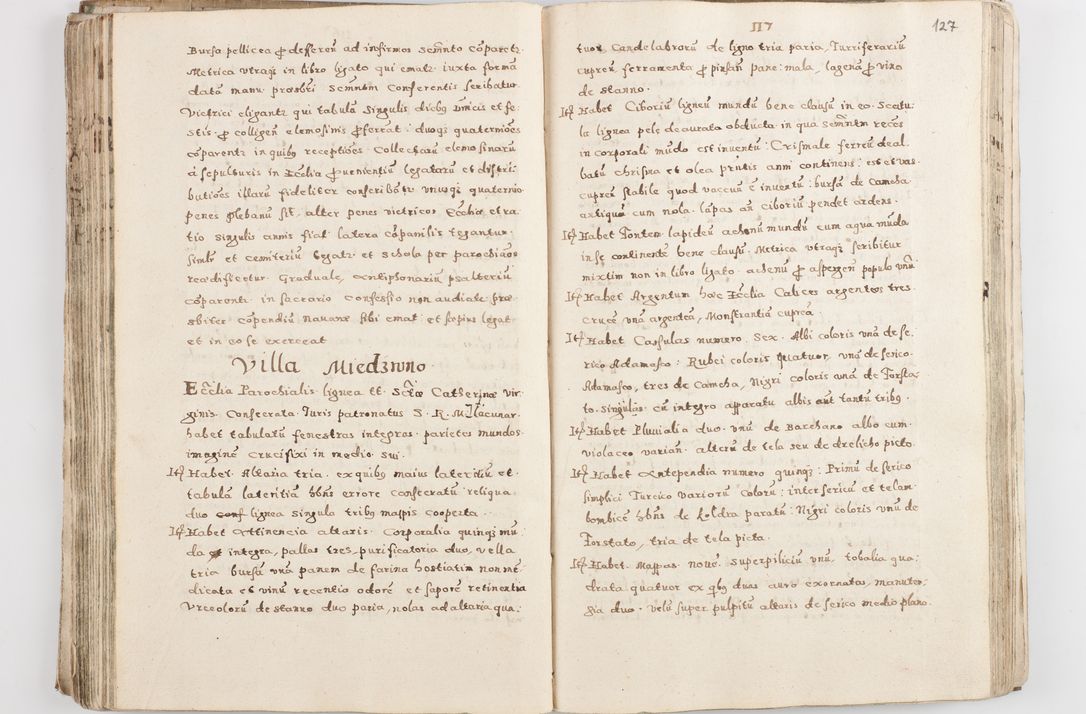 Bursa pellicea ꝓ deferen̄ ad infirmos semīto cōparetꝛ
Metrica utraqꝫ in libro ligato qui ematꝛ iuxta formā
datā manu prosbri semnem Conferentis scribatur
Victrici eligantꝛ qui tabulā singulis diebꝫ dnicis et fe,
stis ꝓ colligen̄ elemosinis ꝓferrat: duoqꝫ quaterniōes
cōparentꝛ in quibꝫ receptiōes Collectarū elemosinarū
a sepulturis in Ecclia ꝓuenientiū legatarū et distri:
butiōes illarū fideliter conscribātꝛ unusqꝫ quaternio
penes plebanū sit, alter penes victricos Ecchiæ et ra,
tio singulis annis fiat latera cōpanilis tegantur
simlr et cemiteriū tegatꝛ et schola per parochiāos
reædificetur. Graduale, Antiphonariū psalteriū
cōparentꝛ in sacrario confessio non audiatꝛ præ,
sbiter cōpendiū Nauaræ sibi emat et sæpius legat
et in eo se exerceat
Villa Miedzwno
Ecclia Parochialis lignea tt. Sctæ Catherinæ vir,
ginis. Consecrata. Iuris patronatus S. R. M. lacunar
habet tabulatū fenestras integras. parietes mundos
imaginē crucifixi in medio sui.
Itꝫ Habet Altaria tria. ex quibꝫ maius lateritiū et
tabulā lateritiā hbns errore consecratū reliqua
duo lignea singula tribꝫ mappis cooperta.
Itꝫ Habet Attinencia altaris. Corporalia quinqꝫ mū,
da integra, pallas tres, purificatoria duo, vella
tria bursā unā panem de farina hostiatim non mē
dicata et vinū recentio odorē et saporē retinentia
Vrceolorū de stanno duo paria, nolas ad altaria qua:
117
127
tuor Candelabrorū de ligno tria paria, Turriferariū
cupreū ferramenta ꝓ pinsen̄ pane: mala, lagenā ꝓ vino
de stanno.
Itꝫ Habet Ciboriū ligneū mundū bene clausū in eo. Scatu:
la lignea pele deaurata obducta in qua semtm recēs
in corporali mūdo est inventū: Crismale ferreū deal.
batū chrisma et olea prntis anni continens: est et vas
cupreū stabile quod vacuū ē inventū: bursā de camcha
antiquā cum nola. lāpas an̄ ciboriū pendet ardens.
Itꝫ Habet Fontem lapideū achenū mundū cum aqua mūda
in se continente bene clausū. Metrica utraqꝫ scribitur
mixtim non in libro ligato. achenū ꝓ aspergen̄ populo unū
Itꝫ Habet Argentum hæc Ecclia Calices argenteos tres.
Crucē unā argenteā, Monstrantiā cupreā.
Itꝫ Habet Cassulas numero. Sex. Albi coloris unā de se,
rico Adamasco: Rubei coloris quatuor, unā de serico.
Adamasco, tres de Camcha, Nigri coloris unā de Forsta,
to. singulas cū integro apparatu albis aut tantū tribꝫ.
Itꝫ Habet Pluvialia duo. unū de Barchano albo cum
violaceo varian̄. alterū de tela seu de drelicho picto.
Itꝫ Habet Antependia numero quinqꝫ: Primū de serico
simplici Turcico variorū colorū: inter sericū et telam
bombicē hbns de koldra paratū: Nigri coloris unū de
Forstato, tria de tela picta.
Itꝫ Habet. Mappas novē. superpiliciū unū, tobalia qua:
drata quatuor ex qbꝫ duas auro exornatas, manuter,
gia duo. velū super pulpitū altaris de serico medio plano.